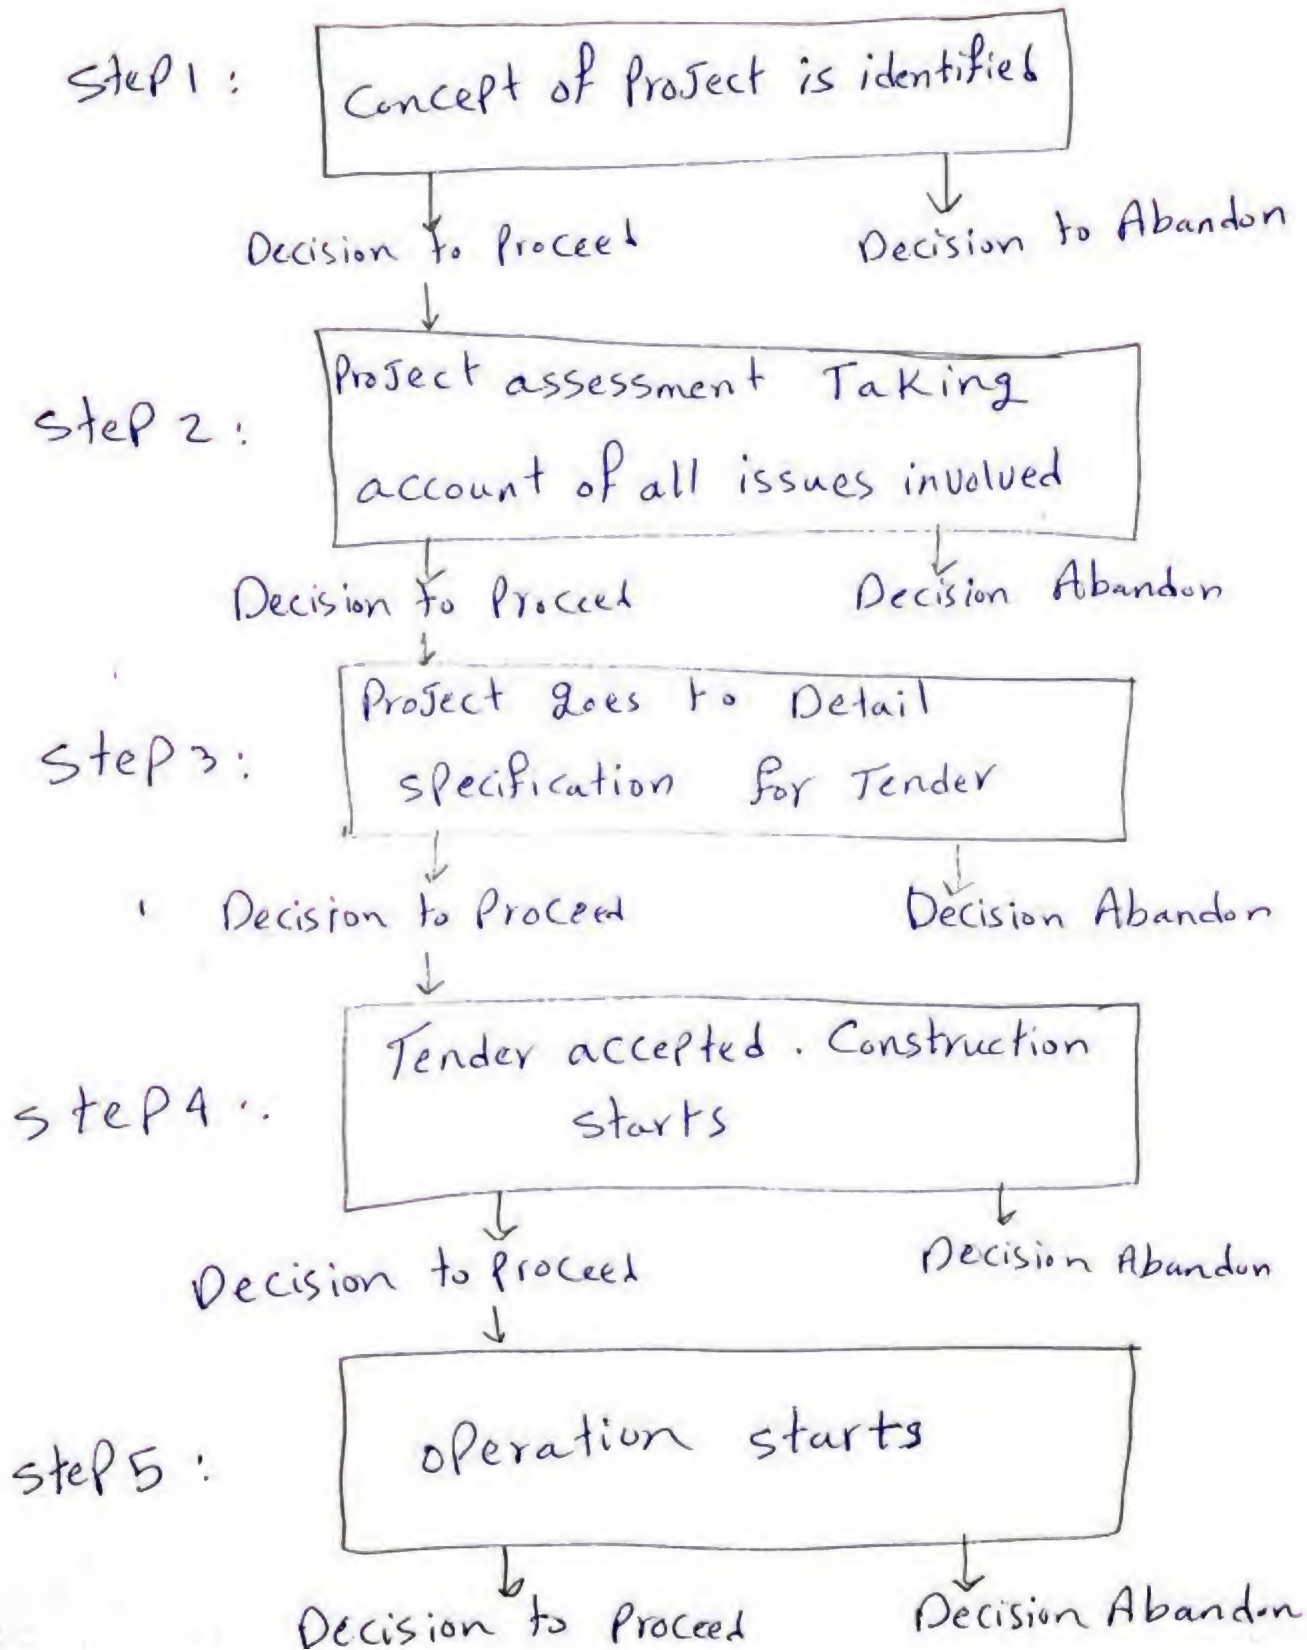 Step 1 :
Concept of Project is identified
Decision to Proceed
Decision to Abandon
Step 2 :
Project assessment Taking
account of all issues involved
Decision to Proceed
Decision Abandon
Step 3 :
Project goes to Detail
specification for Tender
Decision to Proceed
Decision Abandon
Step 4 :
Tender accepted . Construction
starts
Decision to Proceed
Decision Abandon
Step 5 :
operation starts
Decision to Proceed
Decision Abandon